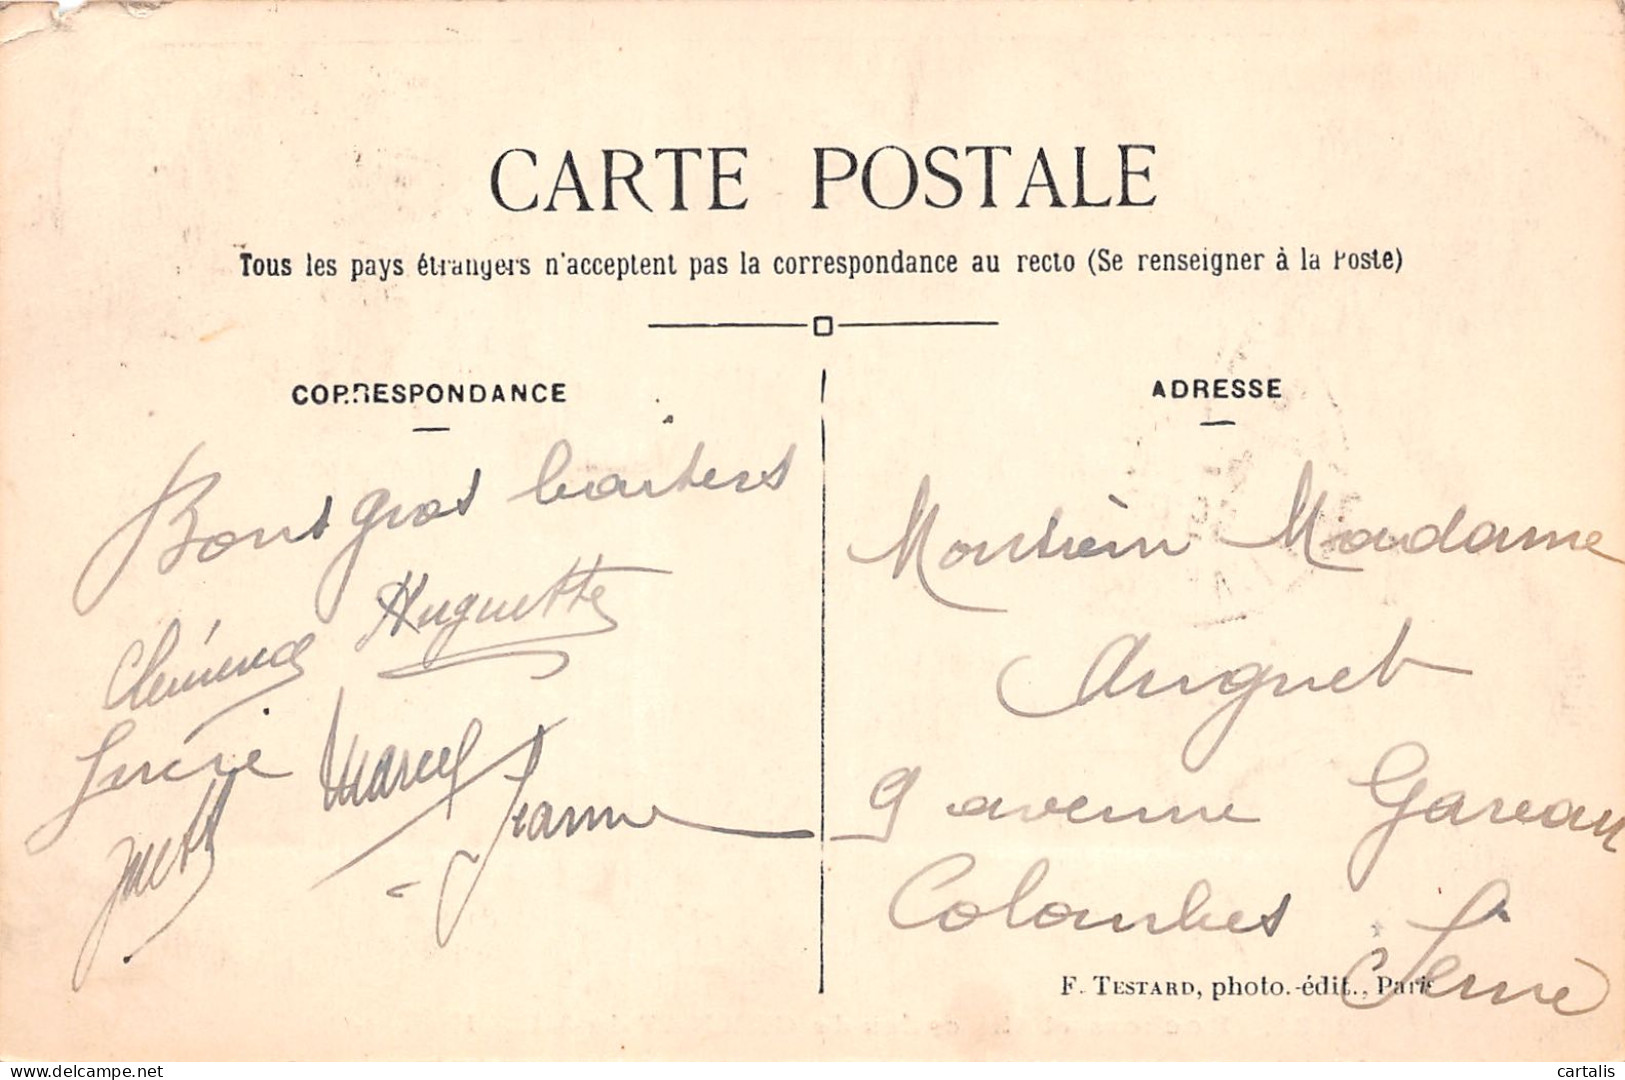 CARTE POSTALE
Tous les pays étrangers n'acceptent pas la correspondance au recto (Se renseigner à la Poste)
CORRESPONDANCE
ADRESSE
Bons gros baisers
Clémence Huguette
Lucie Marcel
Jeanne
Monsieur Madame
Auguet
9 avenue Gareau
Colombes
Seine
F. TESTARD, photo.-édit., Paris
delcampe.net
cartalis